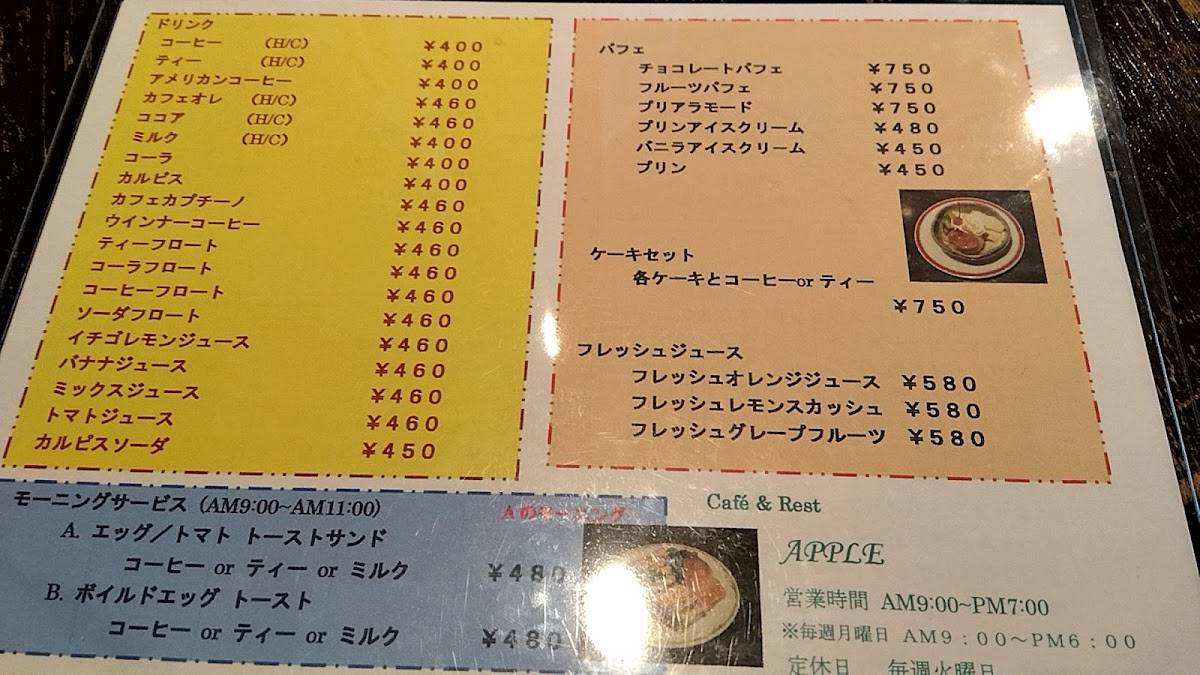 ドリンク
コーヒー (H/C) ￥400
ティー (H/C) ￥400
アメリカンコーヒー ￥400
カフェオレ (H/C) ￥460
ココア (H/C) ￥460
ミルク (H/C) ￥400
コーラ ￥400
カルピス ￥400
カフェカプチーノ ￥460
ウインナーコーヒー ￥460
ティーフロート ￥460
コーラフロート ￥460
コーヒーフロート ￥460
ソーダフロート ￥460
イチゴレモンジュース ￥460
バナナジュース ￥460
ミックスジュース ￥460
トマトジュース ￥460
カルピスソーダ ￥450
パフェ
チョコレートパフェ ￥750
フルーツパフェ ￥750
プリアラモード ￥750
プリンアイスクリーム ￥480
バニラアイスクリーム ￥450
プリン ￥450
ケーキセット
各ケーキとコーヒーor ティー
￥750
フレッシュジュース
フレッシュオレンジジュース ￥580
フレッシュレモンスカッシュ ￥580
フレッシュグレープフルーツ ￥580
モーニングサービス (AM9:00~AM11:00)
Aのモーニング
A. エッグ／トマト トーストサンド
コーヒー or ティー or ミルク ￥480
B. ボイルドエッグ トースト
コーヒー or ティー or ミルク ￥480
Café & Rest
APPLE
営業時間 AM9:00~PM7:00
※毎週月曜日 AM9：00～PM6：00
定休日 毎週火曜日